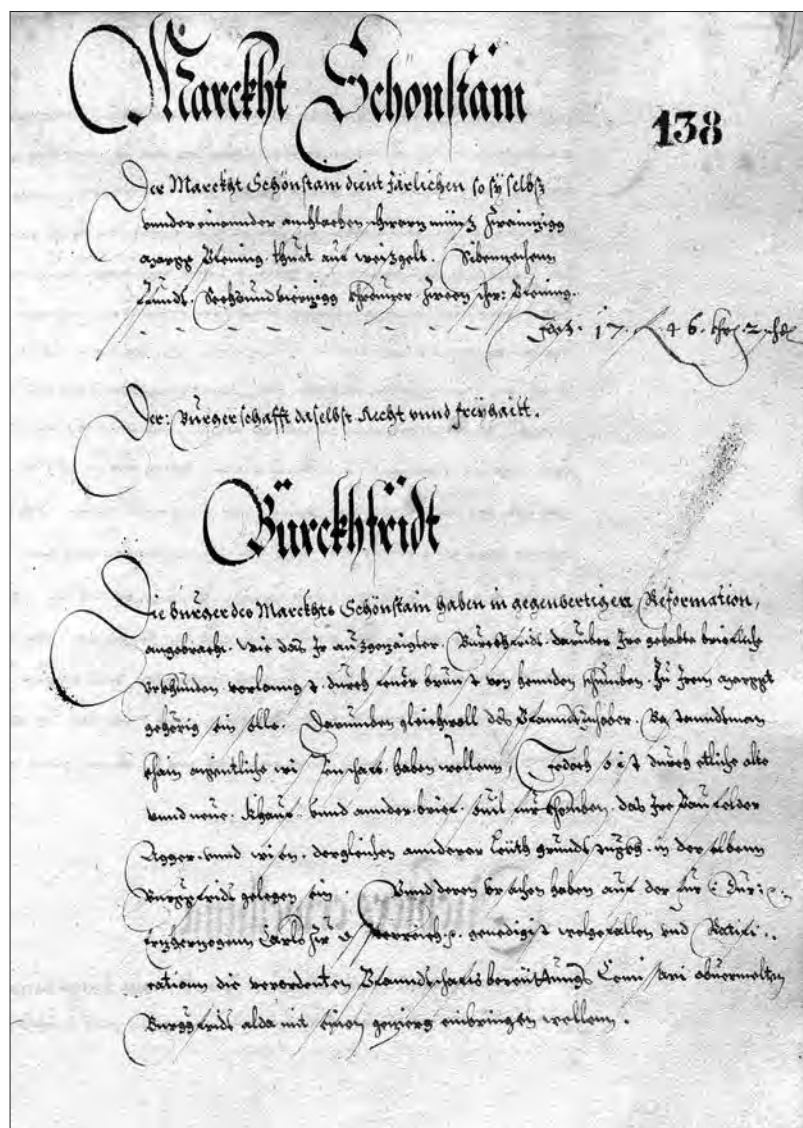 Marckht Schönstain
138
Der Marckht Schönstain dient Järlichen so sÿ selbs
vnnder einannder anschlachen schwarz münz zwainzigg
March Phening. thuet auf weisgelt. Sibenzechenn
Phundt. Sechsundvierzigg Khreuzer. zween Phening.
Idest. 17. 46. 2
Der: Bürgerschafft daselbst Recht vnnd freÿhaitt.
Bürckhfridt
Die bürger des Marckhts Schönstain haben in gegenwertigen Reformation,
angebracht. wie das Ir ausgezaigter. Burckhfridt. darüber Ire gehabte briefliche
Vrkhunden vorlanngst. durch feuer brunst von henden khumben. Zu Irem Marckht
gehörig sein solle. Darumben gleichwoll des Phanndt Inhaber.
khain aigentliche wissenschafft. haben wellenn, Jedoch so ist durch etliche alte
vnnd neue. Khauf. vnnd annder. brief. souil fürkhomben. das Ire Paufelder
Agger. vnnd wisen. dergleichen annderer Leuth grundtstuckh. in derselbenn
Burgkfridt gelegen sein. Vnnd deren vrsachen haben auf der für: Dur:
Erzherzogenn Carls zu Osterreich. genedigist wolgefallen vnd Ratifi..
cationn die verordenten Phanndtschafts bereuttungs Comissari obuermelten
Burgkfridt alda mit seinen gezierg einbringen wellenn.